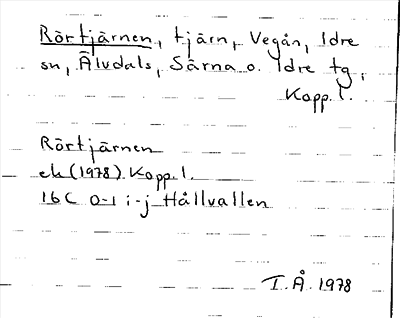 Rörtjärnen, tjärn, Vegån, Idre
sn, Älvdals, Särna o. Idre tg,
Kopp. l.
Rörtjärnen
ek (1978) Kopp. l.
16C 0-1 i-j Hållvallen
I. Å. 1978